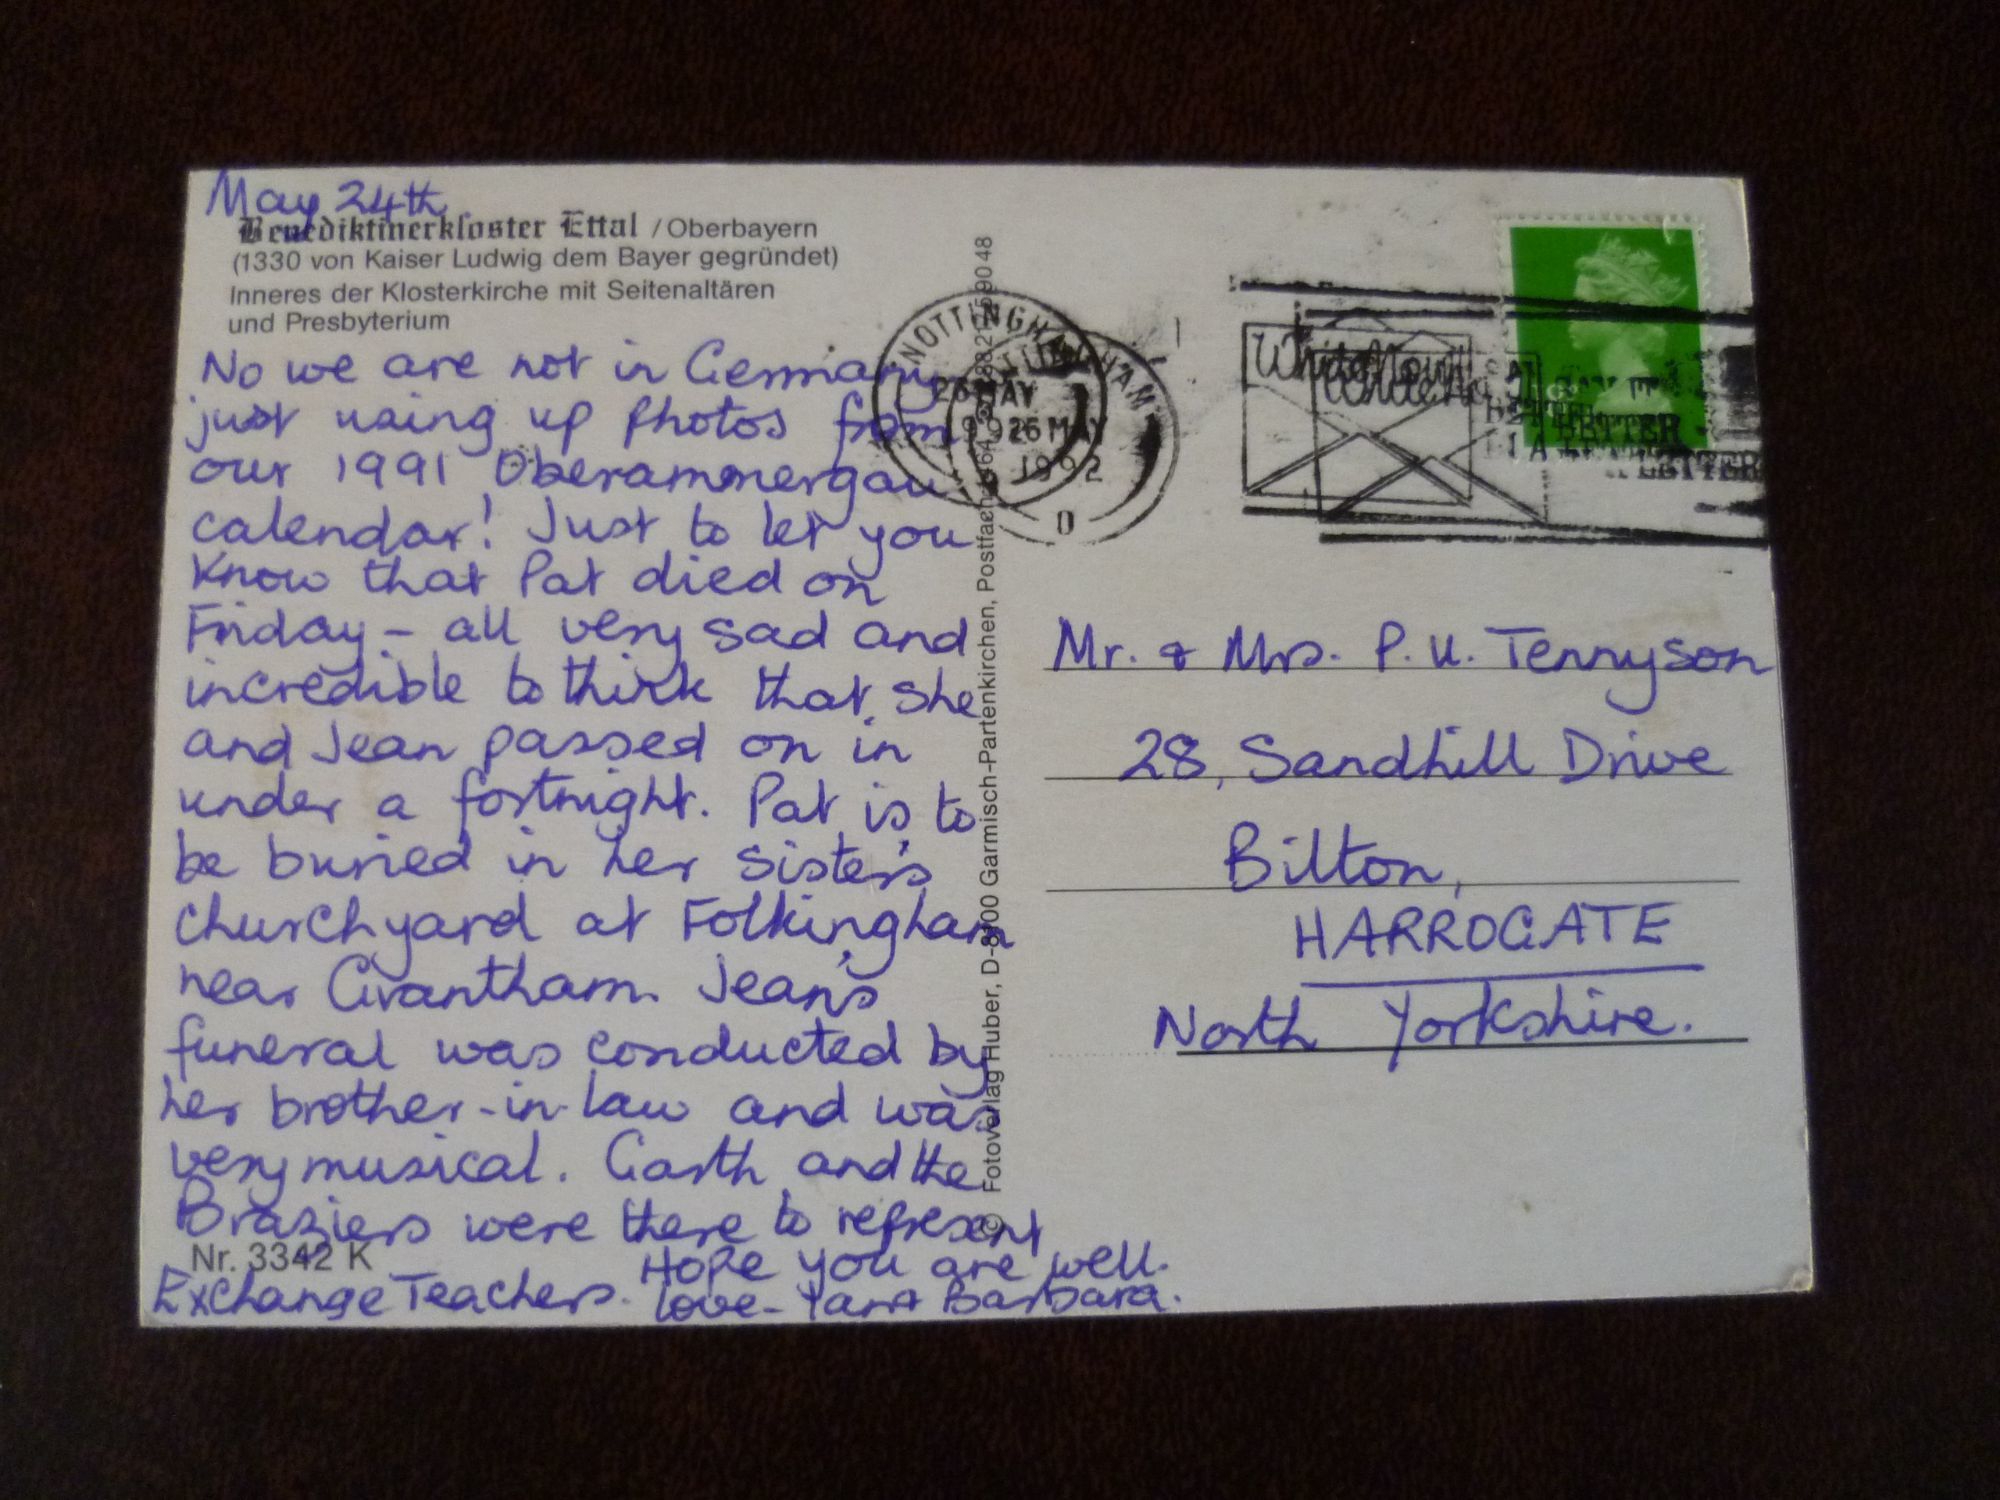 May 24th
Benediktinerkloster Ettal / Oberbayern
(1330 von Kaiser Ludwig dem Bayer gegründet)
Inneres der Klosterkirche mit Seitenaltären
und Presbyterium
No we are not in Germany
just using up photos from
our 1991 Oberammergau
calendar! Just to let you
know that Pat died on
Friday - all very sad and
incredible to think that she
and Jean passed on in
under a fortnight. Pat is to
be buried in her sister's
churchyard at Folkingham
near Grantham. Jean's
funeral was conducted by
her brother-in-law and was
very musical. Garth and the
Braziers were there to represent
Nr. 3342 K
Exchange Teachers. Hope you are well.
Love - Barbara.
© Fotoverlag Huber, D-8100 Garmisch-Partenkirchen, Postfach
NOTTINGHAM
26 MAY
1992
BETTER
LETTER
Mr. & Mrs. P. U. Tennyson
28, Sandhill Drive
Bilton,
HARROGATE
North Yorkshire.